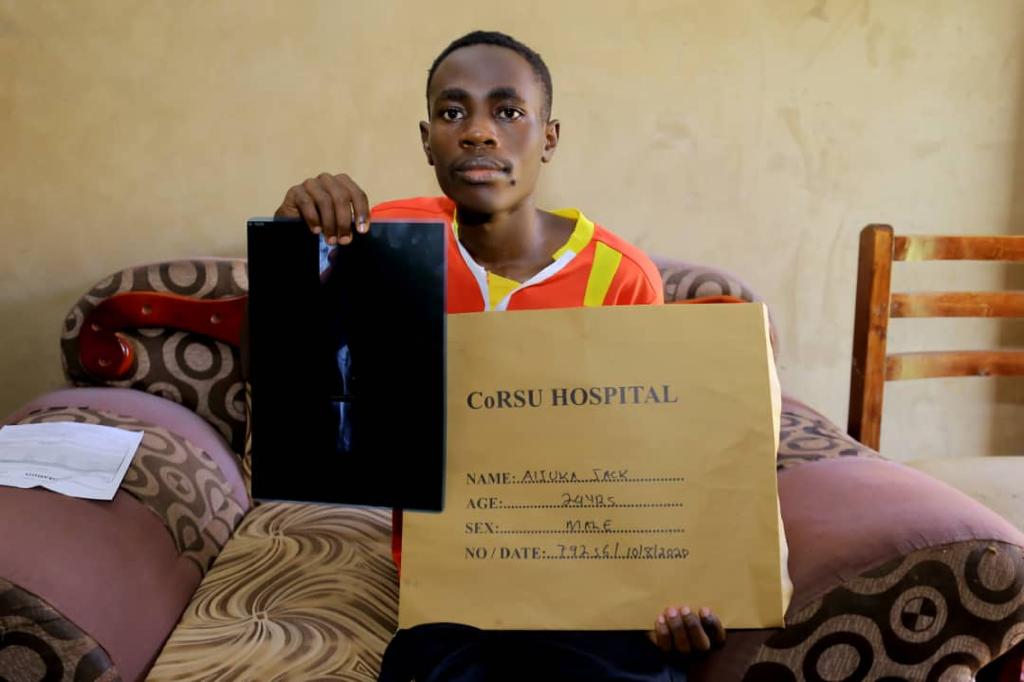 CoRSU HOSPITAL
NAME: ALIUKA JACK
AGE: 24YRS
SEX: MALE
NO / DATE: 79256/10/8/2020